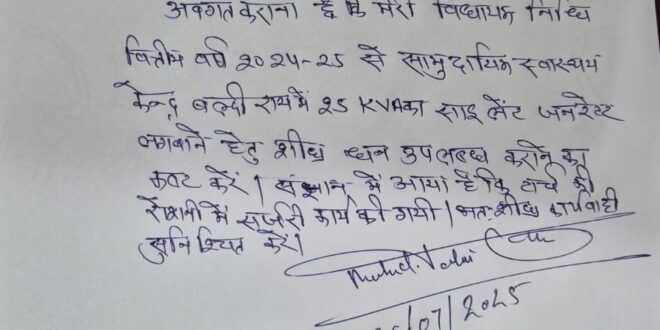 अवगत कराना है कि मेरी विधायक निधि
वित्तीय वर्ष 2024-25 से सामुदायिक स्वास्थ्य
केन्द्र बल्दी राय में 25 KVA का साइलेंट जनरेटर
लगवाने हेतु शीघ्र धन उपलब्ध कराने का
कष्ट करें। संज्ञान में आया है कि टार्च की
रोशनी में सर्जरी कार्य की गयी। अतः शीघ्र कार्यवाही
सुनिश्चित करें।
/07/2025